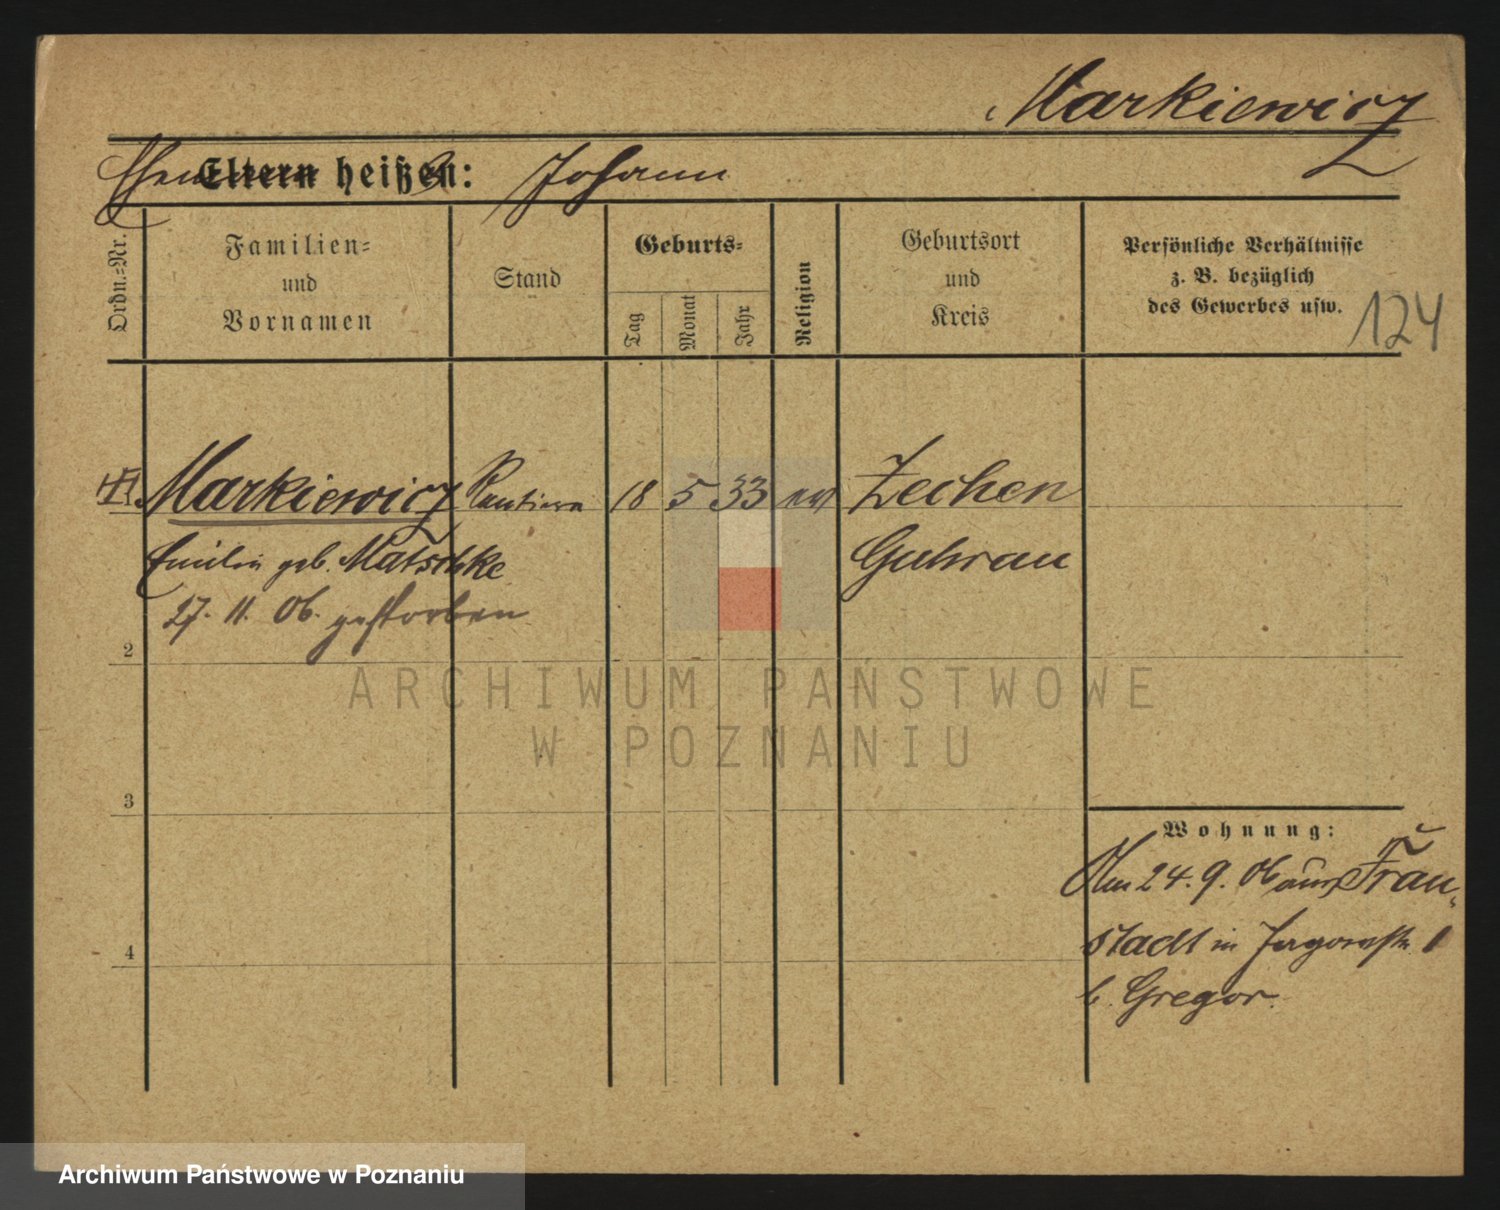 Markiewicz
Eltern heißen: Johann
Ordn.=Nr.
Familien=
und
Vornamen
Stand
Geburts=
Tag
Monat
Jahr
Religion
Geburtsort
und
Kreis
Persönliche Verhältnisse
z. B. bezüglich
des Gewerbes usw.
124
Markiewicz Rentiere 18 5 33 ev Zechen
Emilie geb. Matschke Guhrau
27. 11. 06. gestorben
2
ARCHIWUM PAŃSTWOWE
W POZNANIU
3
Wohnung:
Am 24. 9. 06 aus Frau-
stadt in Jagowstr. 1
4
b. Gregor.
Archiwum Państwowe w Poznaniu